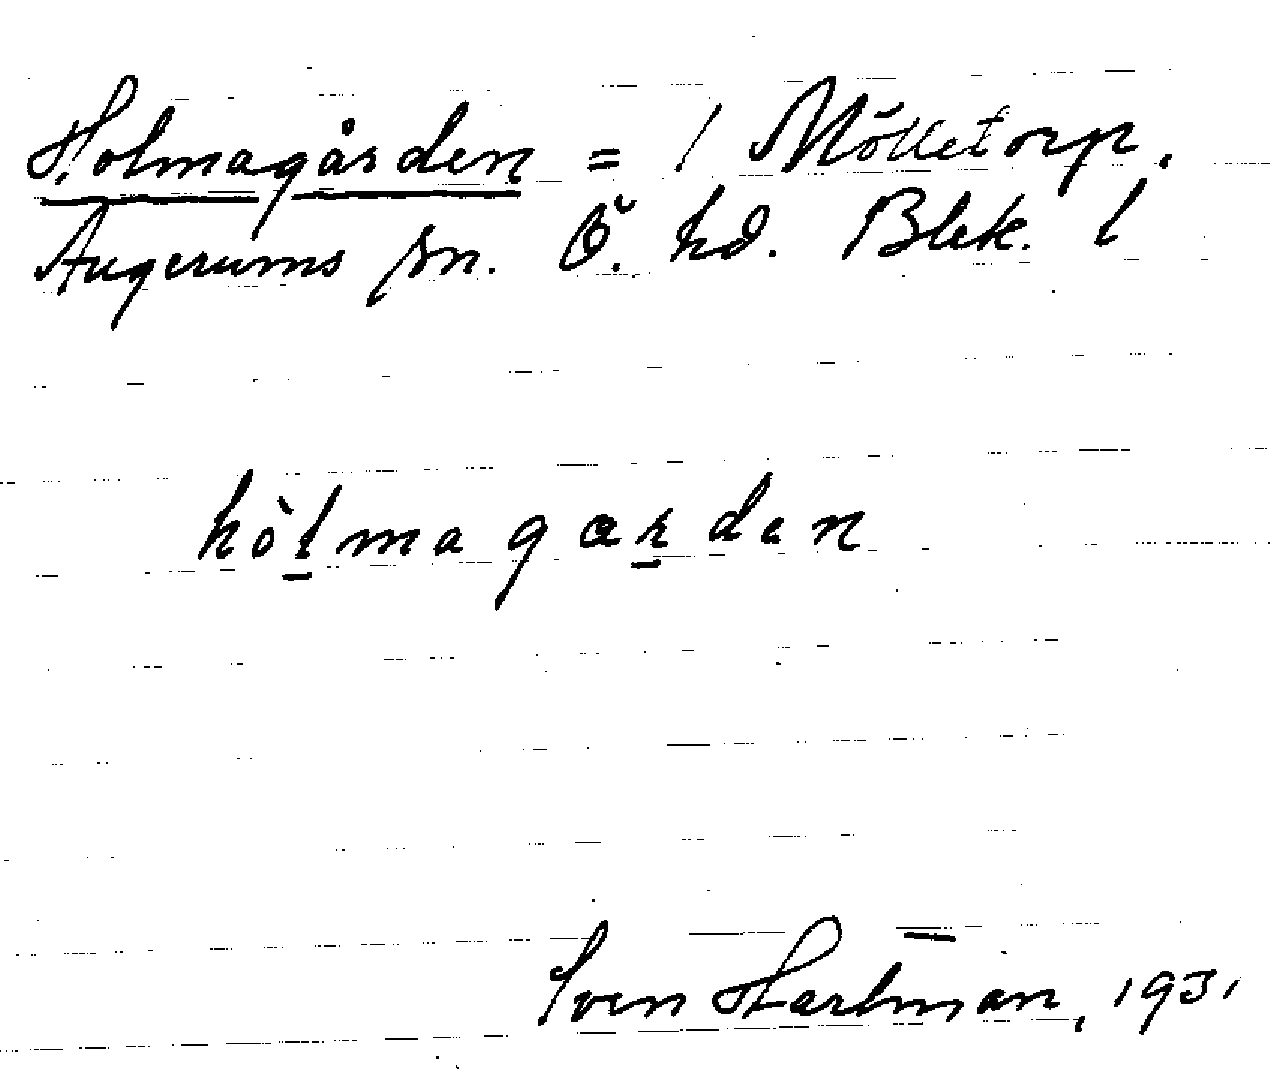 Holmagården = 1 Möllетorp.
Augerums sn. Ö. hd. Blek. l
hòlmagarden
Sven Hartman, 1931